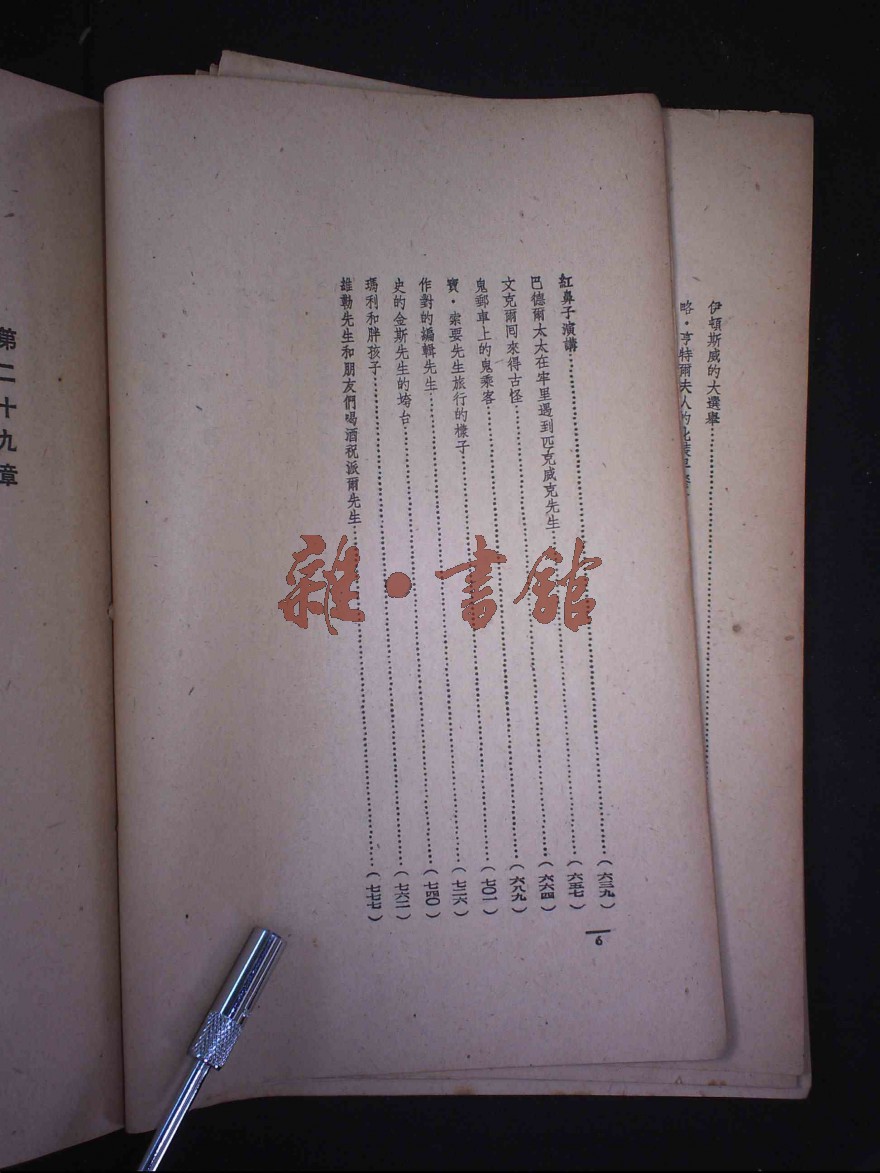 伊頓斯威的大選舉
略・亨特爾夫人的化裝早
紅鼻子演講……(六三九)
巴德爾太太在牢里遇到匹克威克先生……(六五七)
文克爾囘來得古怪……(六六四)
鬼郵車上的鬼乘客……(六八九)
寶・索要先生旅行的樣子……(七〇一)
作對的編輯先生……(七二六)
史的金斯先生的垮台……(七四〇)
瑪利和胖孩子……(七六二)
維勒先生和朋友們喝酒祝派爾先生……(七七七)
6
第二十九章
雜・書館